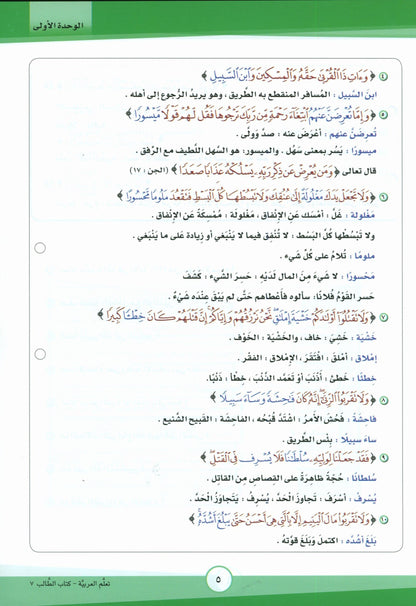 الوحدة الأولى
٤ ﴿ وَءَاتِ ذَا ٱلْقُرْبَىٰ حَقَّهُۥ وَٱلْمِسْكِينَ وَٱبْنَ ٱلسَّبِيلِ ﴾
ابنَ السَّبيل : المُسافر المنقطع به الطَّريق ، وهو يريدُ الرُّجوع إلى أهله .
٥ ﴿ وَإِمَّا تُعْرِضَنَّ عَنْهُمُ ٱبْتِغَآءَ رَحْمَةٍ مِّن رَّبِّكَ تَرْجُوهَا فَقُل لَّهُمْ قَوْلًا مَّيْسُورًا ﴾
تُعرضنَّ عنهم : أعْرَضَ عنه : صدّ وَولَّى .
ميسورًا : يُسر بمعنى سَهُل . والميسور: هو السهل اللَّطيف مع الرِّفق .
قال تعالى ﴿ وَمَن يُعْرِضْ عَن ذِكْرِ رَبِّهِۦ يَسْلُكْهُ عَذَابًا صَعَدًا ﴾ (الجن : ١٧)
٦ ﴿ وَلَا تَجْعَلْ يَدَكَ مَغْلُولَةً إِلَىٰ عُنُقِكَ وَلَا تَبْسُطْهَا كُلَّ ٱلْبَسْطِ فَتَقْعُدَ مَلُومًا مَّحْسُورًا ﴾
مَغْلولة : غَلَّ : أمْسَكَ عَنِ الإنْفاق ، مَغْلُولة : مُمْسِكَةٌ عَنِ الإنْفاق .
ولا تَبْسُطْها كُلَّ البَسْط : لا تُنْفِق فيما لا يَنْبَغي أو زيادة عَلى ما يَنْبَغي .
ملومًا : تُلامُ على كُلِّ شيء .
مَحْسورًا : لا شيءَ مِنَ المال لَدَيْهِ : حَسِرَ الشَّيء : كَشَفَ
حسر القَوْمُ فُلانًا، سألوه فأعْطاهم حَتَّى لم يَبْقَ عِنْدَه شَيْءٌ .
٧ ﴿ وَلَا تَقْتُلُوٓا۟ أَوْلَٰدَكُمْ خَشْيَةَ إِمْلَٰقٍ نَّحْنُ نَرْزُقُهُمْ وَإِيَّاكُمْ إِنَّ قَتْلَهُمْ كَانَ خِطْـًٔا كَبِيرًا ﴾
خَشْيَةَ : خَشِيَ : خاف ، والخَشْيَة : الخَوْف .
إملاق : أمْلَقَ : افْتَقَرَ ، الإمْلاق : الفقْر .
خِطئًا : خَطئ : أذْنَبَ أو تَعمَّد الذَّنْبَ ، خِطْأ : ذَنْبًا.
٨ ﴿ وَلَا تَقْرَبُوا۟ ٱلزِّنَىٰٓ إِنَّهُۥ كَانَ فَٰحِشَةً وَسَآءَ سَبِيلًا ﴾
فاحِشةً : فَحُشَ الأمرُ : اشْتَدَّ قُبْحُه ، الفاحشة : القَبيح الشَّنيع .
ساءَ سبيلًا : بِئْس الطَّريق .
٩ ﴿ فَقَدْ جَعَلْنَا لِوَلِيِّهِۦ سُلْطَٰنًا فَلَا يُسْرِف فِّى ٱلْقَتْلِ ﴾
سُلطانًا : حُجَّةً ظاهِرةً على القِصاص مِنَ القاتِل .
يُسْرِفْ : أسْرَفَ : تجاوزَ الحَدَّ ، يُسْرِفُ : يَتَجاوَزُ الْحَدَّ .
١٠ ﴿ وَلَا تَقْرَبُوا۟ مَالَ ٱلْيَتِيمِ إِلَّا بِٱلَّتِى هِىَ أَحْسَنُ حَتَّىٰ يَبْلُغَ أَشُدَّهُۥ ﴾
بَلغَ أشدَّه : اكتملَ وَبَلَغَ قوَّتَه .
٥
تعلّم العربيّة - كتاب الطّالب ٧